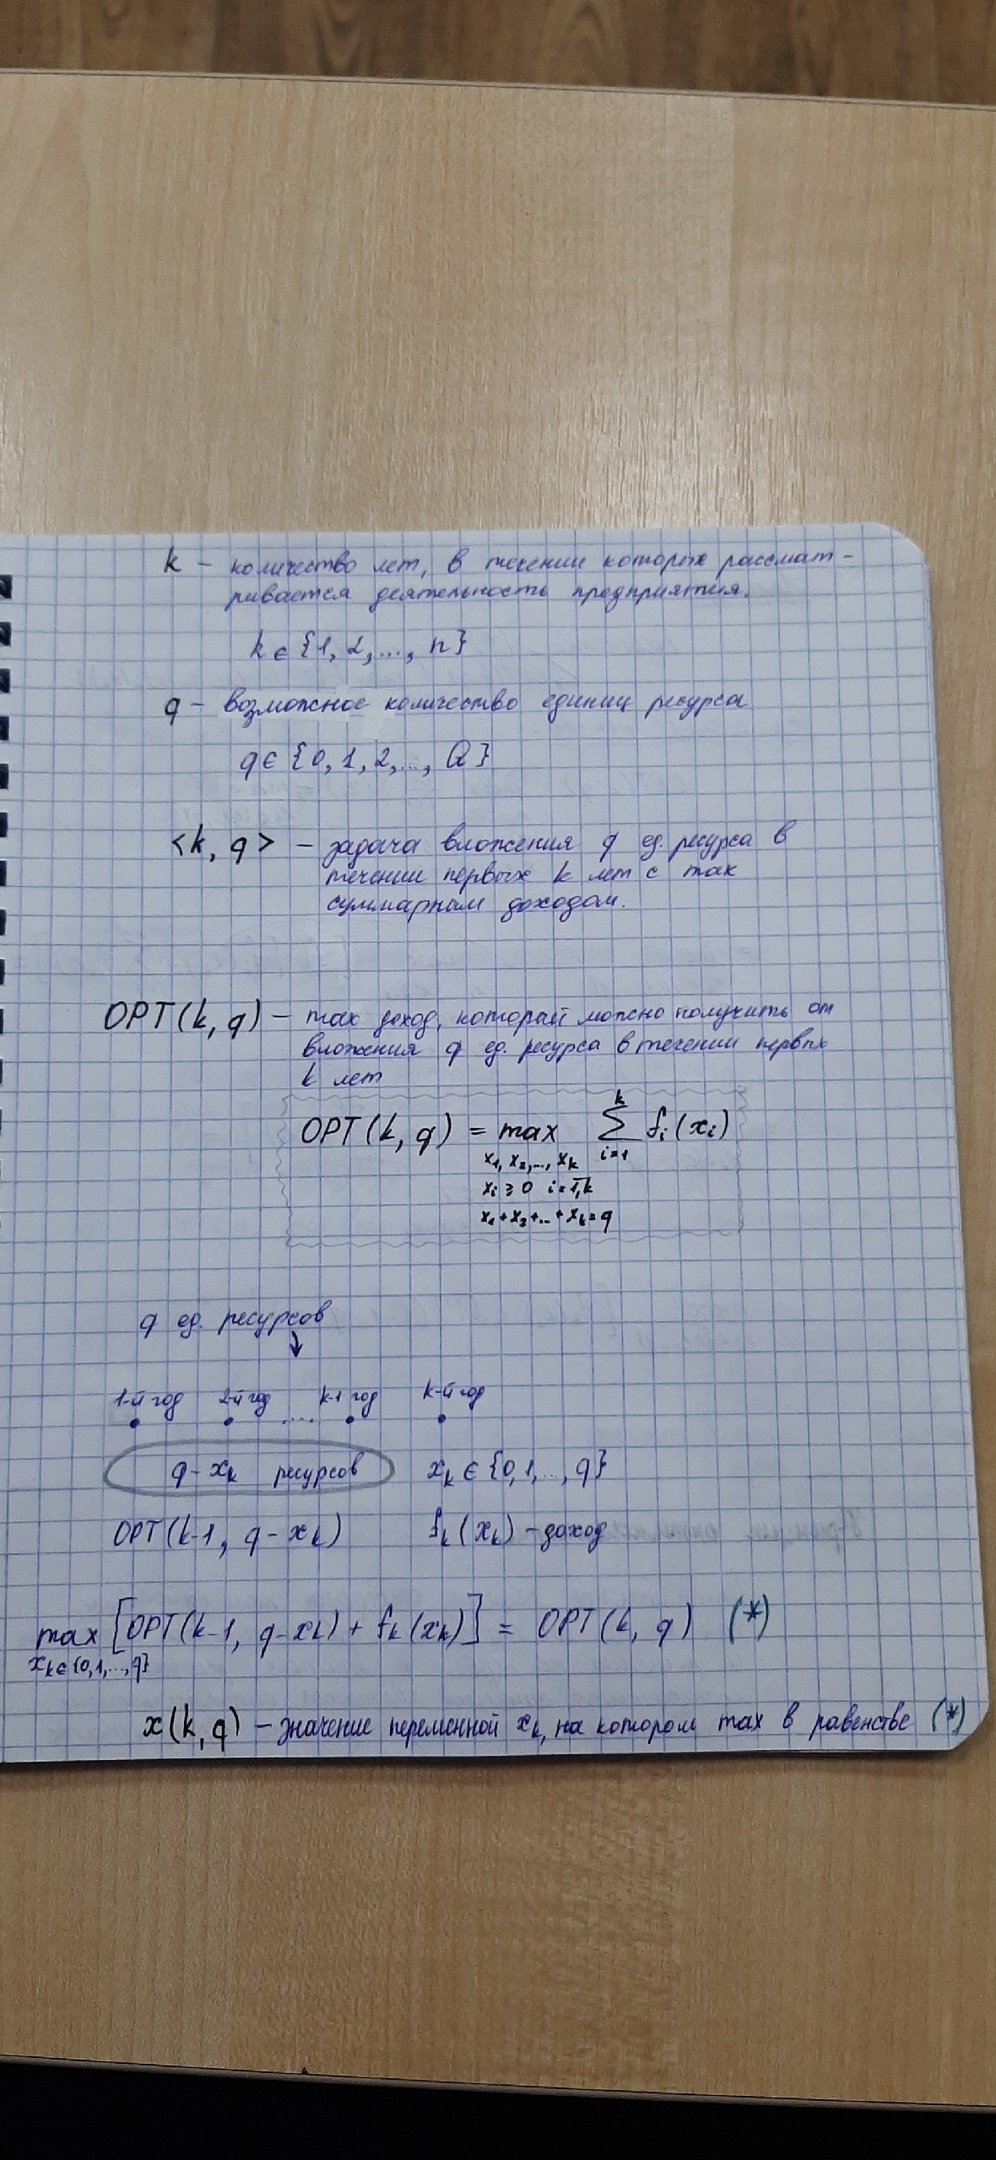 k – количество лет, в течении которых рассмат-
ривается деятельность предприятия.
k ∈ {1, 2, ..., n}
q – возможное количество единиц ресурса
q ∈ {0, 1, 2, ..., Q}
<k, q> – задача вложения q ед. ресурса в
течении первых k лет с max
суммарным доходом.
OPT(k, q) – max доход, который можно получить от
вложения q ед. ресурса в течении первых
k лет
OPT(k, q) = max ∑ fᵢ(xᵢ)
k
i=1
x₁, x₂, ..., xₖ
xᵢ ≥ 0 i = 1,k
x₁ + x₂ + ... + xₖ = q
q ед. ресурсов
↓
1-й год 2-й год ... k-1 год k-й год
q - xₖ ресурсов xₖ ∈ {0, 1, ..., q}
OPT(k-1, q-xₖ) fₖ(xₖ) – доход
max [OPT(k-1, q-xₖ) + fₖ(xₖ)] = OPT(k, q) (*)
xₖ ∈ {0, 1, ..., q}
x(k, q) – значение переменной xₖ, на котором max в равенстве (*)